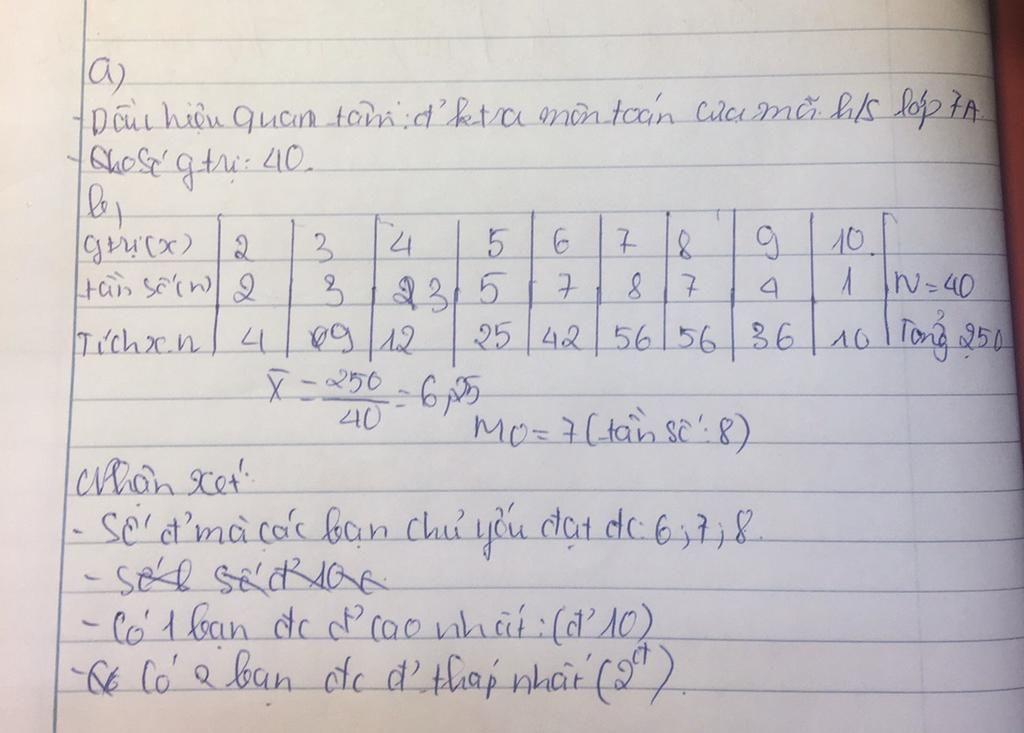 a)
- Dấu hiệu quan tâm: đ' ktra môn toán của mỗi h/s lớp 7A.
- Có số gtrị: 40.
b,
gtrị(x) 2 3 4 5 6 7 8 9 10.
tần số(n) 2 3 3 5 7 8 7 4 1 N=40
Tích x.n 4 9 12 25 42 56 56 36 10 Tổng 250
X̄ = 250/40 = 6,25
M0 = 7 (tần số: 8)
Nhận xét:
- Số đ' mà các bạn chủ yếu đạt đc: 6; 7; 8.
- Số số đ' 10
- Có 1 bạn đc đ' cao nhất: (đ' 10)
- Có 2 bạn đc đ' thấp nhất (2đ).